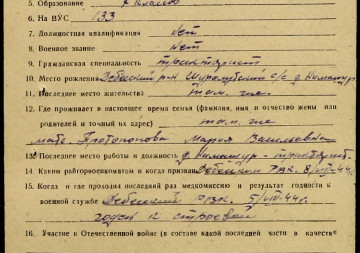 5. Образование 4 класса
6. На ВУС 133
7. Должностная квалификация нет
8. Военное звание нет
9. Гражданская специальность тракторист
10. Место рождения Дебесский р-н с/с д.
11. Последнее место жительства там же
12. Где проживает в настоящее время семья (фамилия, имя и отчество жены или
родителей и точный их адрес) там же
мать Протопопова Мария Васильевна
13. Последнее место работы и должность д. тракторист
14. Каким райгорвоенкоматом и когда призван Дебесским РВК. 8/VIII-44г.
15. Когда и где проходил последний раз медкомиссию и результат годности к
военной службе Дебесский РВК. 5/VIII-44г.
годен к строевой
16. Участие в Отечественной войне (в составе какой последней части в качеств